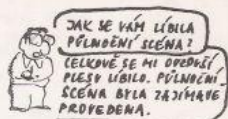 JAK SE VÁM LÍBILA
PŮLNOČNÍ SCÉNA?
CELKOVĚ SE MI
PLESU LÍBILO. PŮLNOČNÍ
SCÉNA BYLA ZAJÍMAVĚ
PROVEDENA.